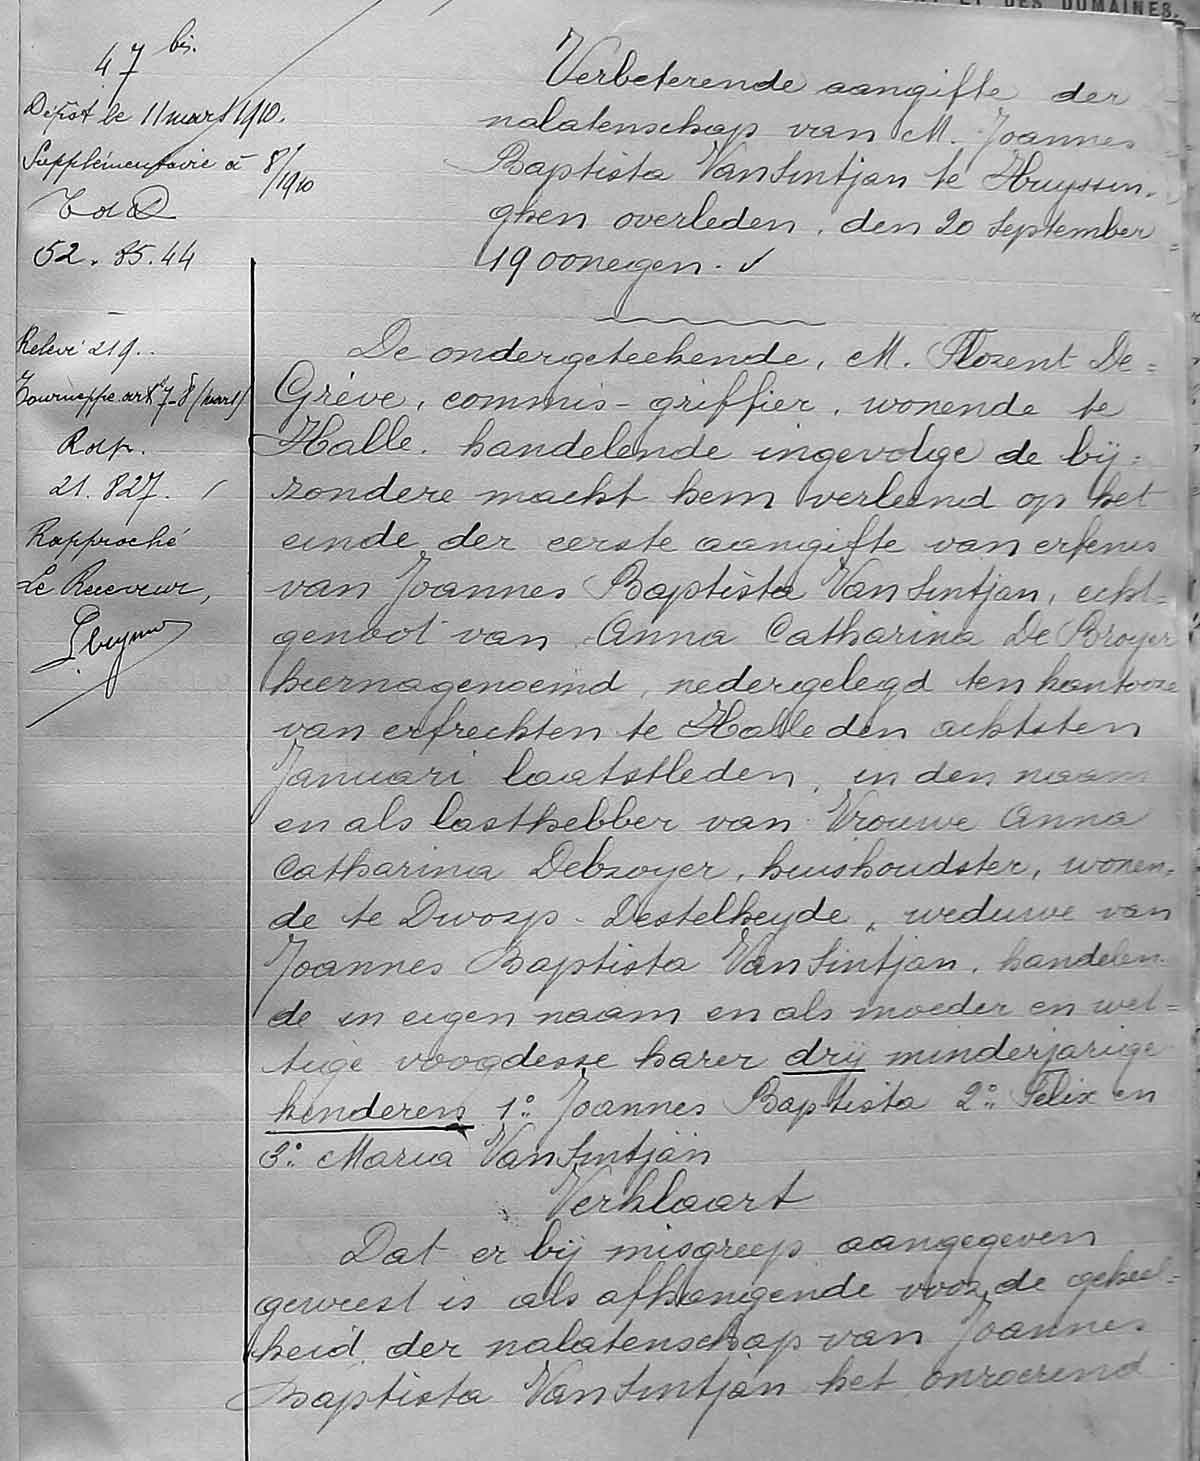 ET DES DOMAINES.
47 bis.
Dépôt le 11 mars 1910.
Supplémentaire à 8/1910
52. 85. 44
Relevé 219.
Rap.
21. 827.
Rapproché
Le Receveur,
Verbeterende aangifte der
nalatenschap van M. Joannes
Baptista VanSintjan te Huyssin-
ghen overleden, den 20 September
1900negen.
De ondergeteekende, M. Florent De=
Grève, commis-griffier, wonende te
Halle, handelende ingevolge de bij=
zondere macht hem verleend op het
einde der eerste aangifte van erfenis
van Joannes Baptista VanSintjan, echt=
genoot van Anna Catharina De Broyer
hiernagenoemd, nedergelegd ten kantoore
van erfrechten te Halle den achtsten
Januari laatstleden, in den naam
en als lasthebber van Vrouwe Anna
Catharina Debroyer, huishoudster, wonen=
de te Dworp-Destelheyde, weduwe van
Joannes Baptista VanSintjan, handelen-
de in eigen naam en als moeder en wet=
tige voogdesse harer drij minderjarige
kinderens 1° Joannes Baptista 2° Felix en
3° Maria VanSintjan
Verklaart
Dat er bij misgreep aangegeven
geweest is als afhangende voor de geheel=
heid der nalatenschap van Joannes
Baptista VanSintjan het onroerend